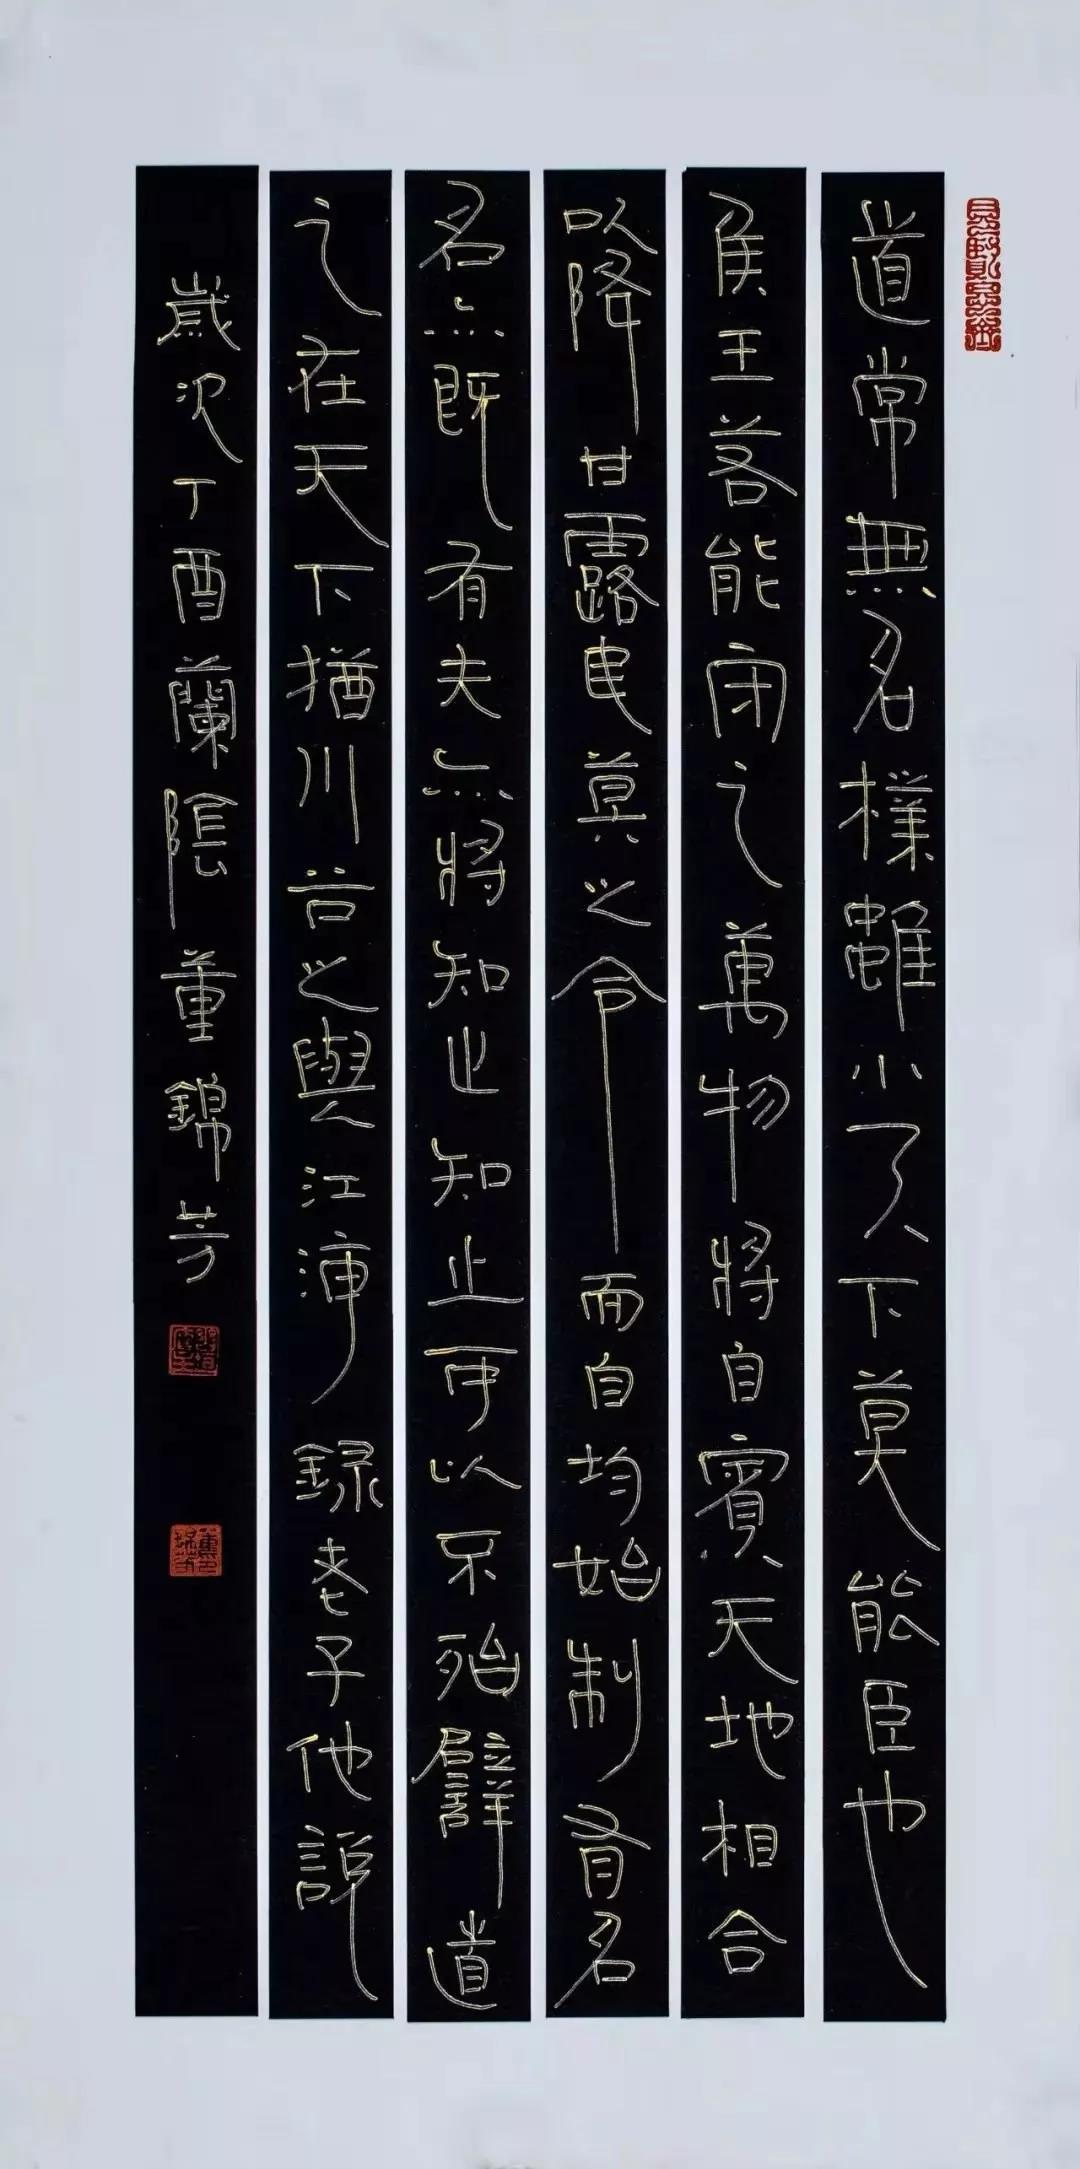 道常無名樸雖小天下莫能臣也
侯王若能守之萬物將自賓天地相合
以降甘露民莫之令而自均始制有名
名亦既有夫亦將知止知止可以不殆譬道
之在天下猶川谷之與江海録老子他説
歲次丁酉蘭陰董錦芳